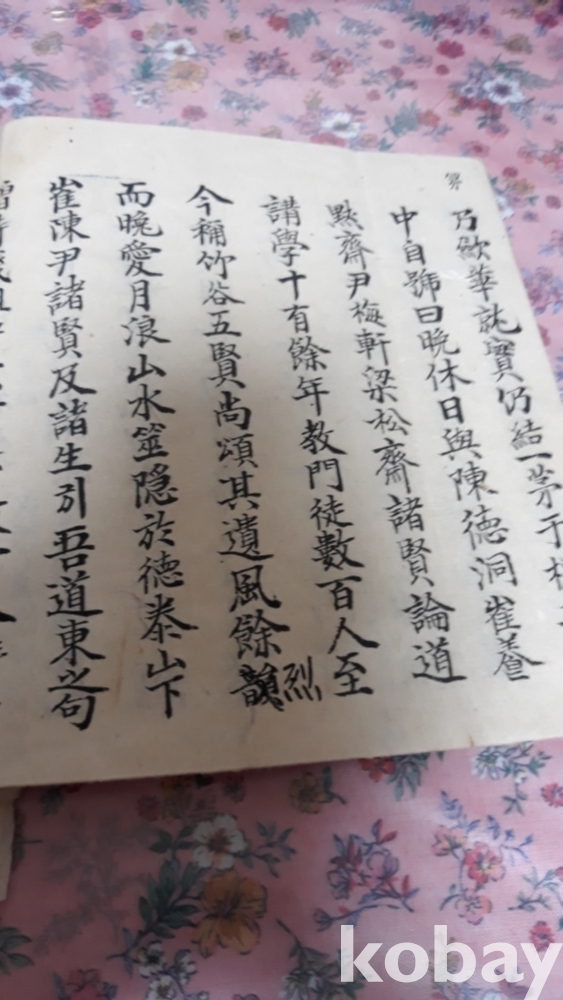 乃歛華就實仍結一茅于
中自號曰晩休日與陳德洞崔養
默齋尹梅軒梁松齋諸賢論道
講學十有餘年教門徒數百人至
今稱竹谷五賢尚頌其遺風餘韻烈
而晩愛月浪山水筮隱於德泰山下
崔陳尹諸賢及諸生引吾道東之句
kobay